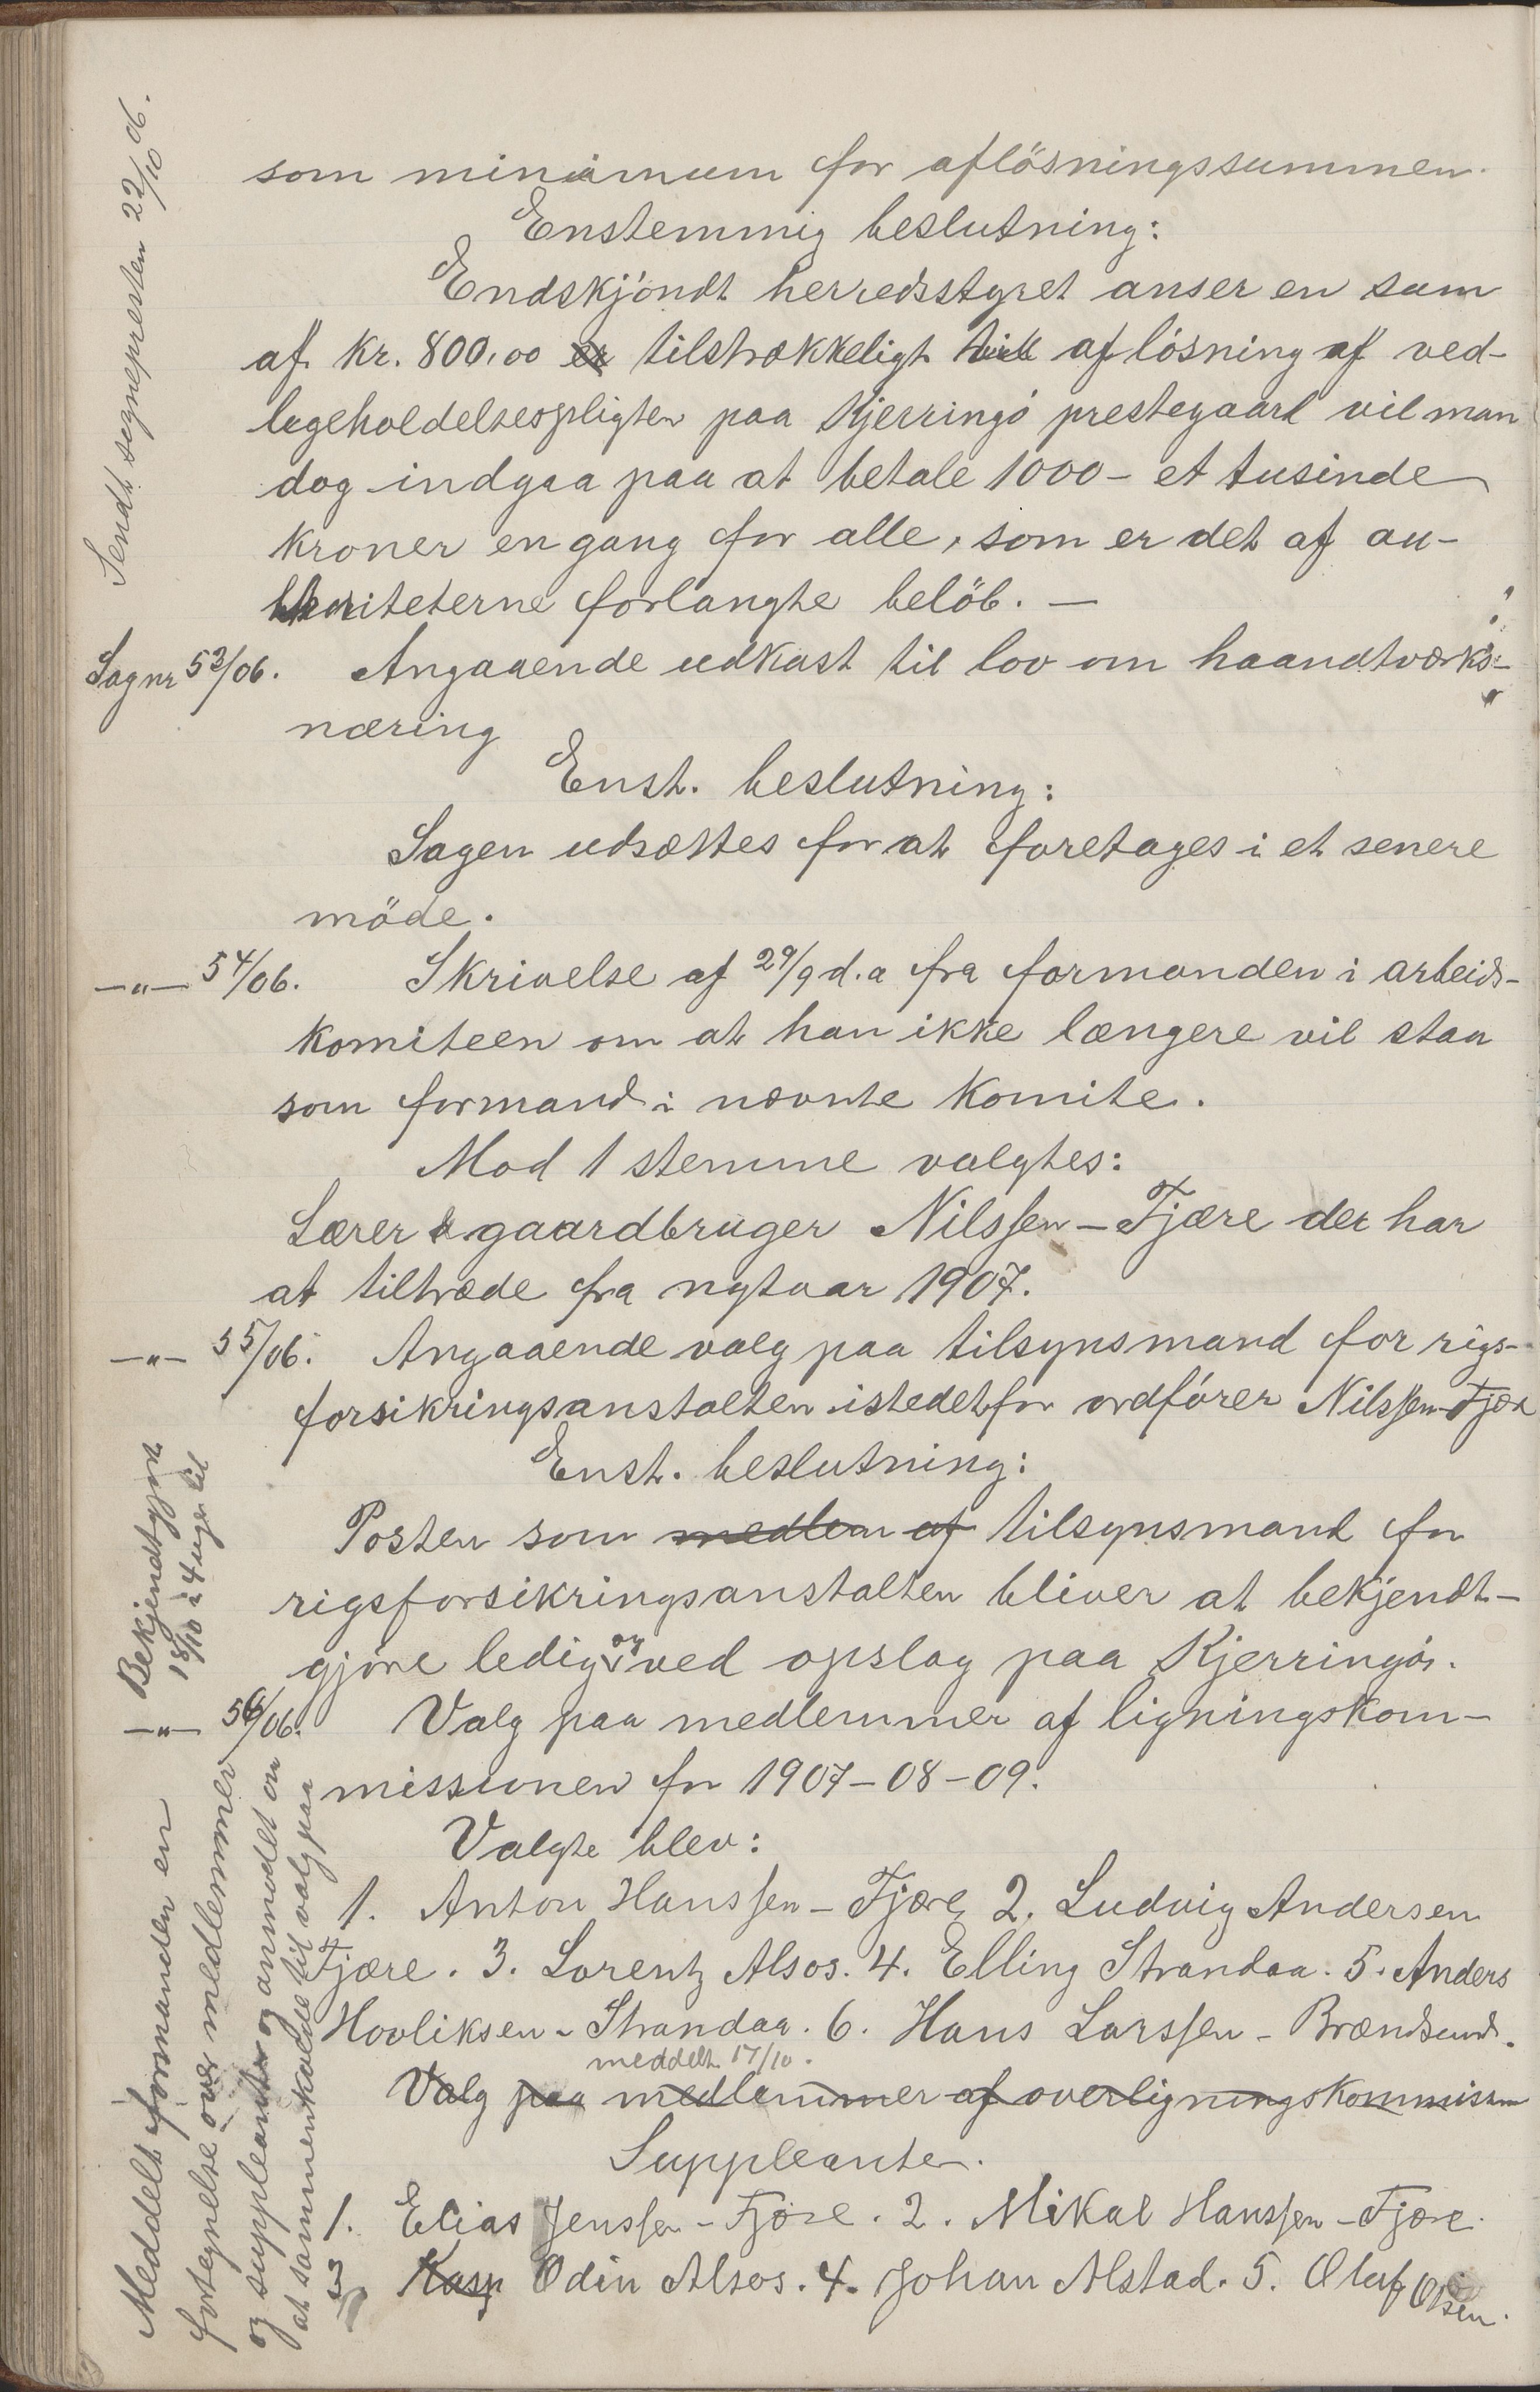 Sendt sognepresten 22/10 06.
som minimum for aflösningssummen.
Enstemmig beslutning:
Endskjöndt herredsstyret anser en sum
af kr. 800,00 er tilstrækkeligt til aflösning af ved-
legeholdelsespligten paa Kjerringö prestegaard vil man
dog indgaa paa at betale 1000 - et tusinde
kroner en gang for alle, som er det af au-
thoriteterne forlangte belöb. —
Sag nr 53/06. Angaaende udkast til lov om haandtværks-
næring
Enst. beslutning:
Sagen udsættes for at foretages i et senere
möde.
—"— 54/06. Skrivelse af 29/9 d.a fra formanden i arbeids-
komiteen om at han ikke længere vil staa
som formand i nævnte komite.
Mod 1 stemme valgtes:
Lærer & gaardbruger Nilssen - Fjære der har
at tiltræde fra nytaar 1907.
—"— 55/06. Angaaende valg paa tilsynsmand for rigs-
forsikringsanstalten istedetfor ordförer Nilssen - Fjære
Enst. beslutning:
Bekjendtgjort
18/10 i 4 uger til
Posten som medlem af tilsynsmand for
rigsforsikringsanstalten bliver at bekjendt-
gjöre ledig og ved opslag paa Kjerringö.
—"— 56/06. Valg paa medlemmer af ligningskom-
missionen for 1907-08-09.
Valgte blev:
1. Anton Hanssen - Fjære 2. Ludvig Andersen
Fjære. 3. Lorentz Alsos. 4. Elling Strandaa. 5. Anders
Hovliksen - Strandaa. 6. Hans Larssen - Brændsund.
meddelt 17/10.
Valg paa medlemmer af overligningskommission
Suppleanter.
1. Elias Jenssen - Fjære. 2. Mikal Hanssen - Fjære.
3 Kasp Odin Alsos. 4. Johan Alstad. 5. Oluf Olsen.
Meddelt formanden en
fortegnelse over medlemmer
og suppleanter og anmodet om
at sammenkalde til valg paa